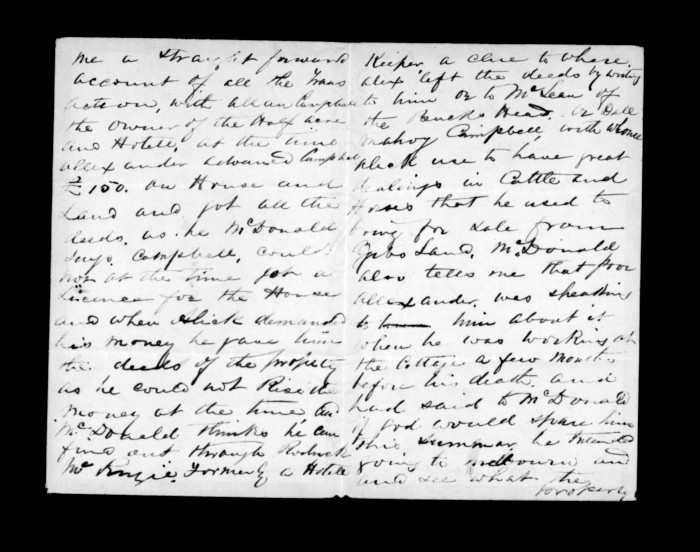 me a straight forward
account of all the Trans
action, with Allan Campbell
the owner of the Half acre
and Hotell, at the time
allexander advanced Campbell
£150. on House and
Land and got all the
deeds. as he McDonald
Says Campbell, could
not at the time get a
Licence for the House
and when Alick demanded
his money he gave him
the deeds of the property
as he could not Rise the
money at the time and
McDonald thinks he can
find out through Rodrick
McKinzie. Formerly a Hotell
Keeper a clue to where,
alex left the deeds by writing
to him or to McLean of
the Bucks Head. or Dall
mahoy Campbell, with whome
Alick use to have great
dealings in Cattle and
Horses that he used to
bring for sale from
Gibs Land. McDonald
also telles me that poor
allexander. was speaking
to him about it
when he was working at
the Cottage a few months
before his death. and
had said to McDonald
if god would spare him
this Summar, he intended
going to Melbourn and
and see what the
property